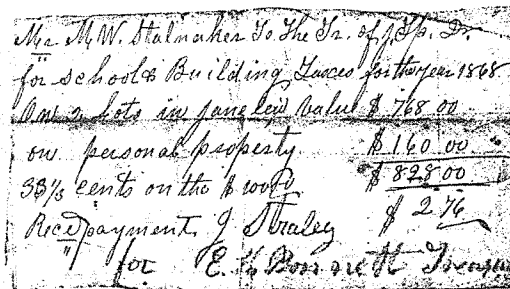 Mr M.W. Stalnaker To The Tr. of J. Tp. Dr.
for school & Building Taxes for the year 1868
On 2 lots in Jane lew value $ 768 00
on personal property $ 160 00
$ 828 00
33 1/3 cents on the $ 100 00
$ 2 76
Recd payment J Straley
for E. Bonnett